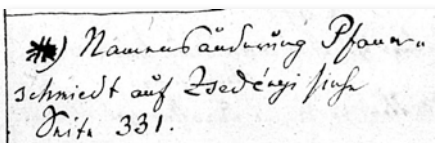 *) Namensänderung Pfann-
schmiedt auf Zsedényi siehe
Seite 331.